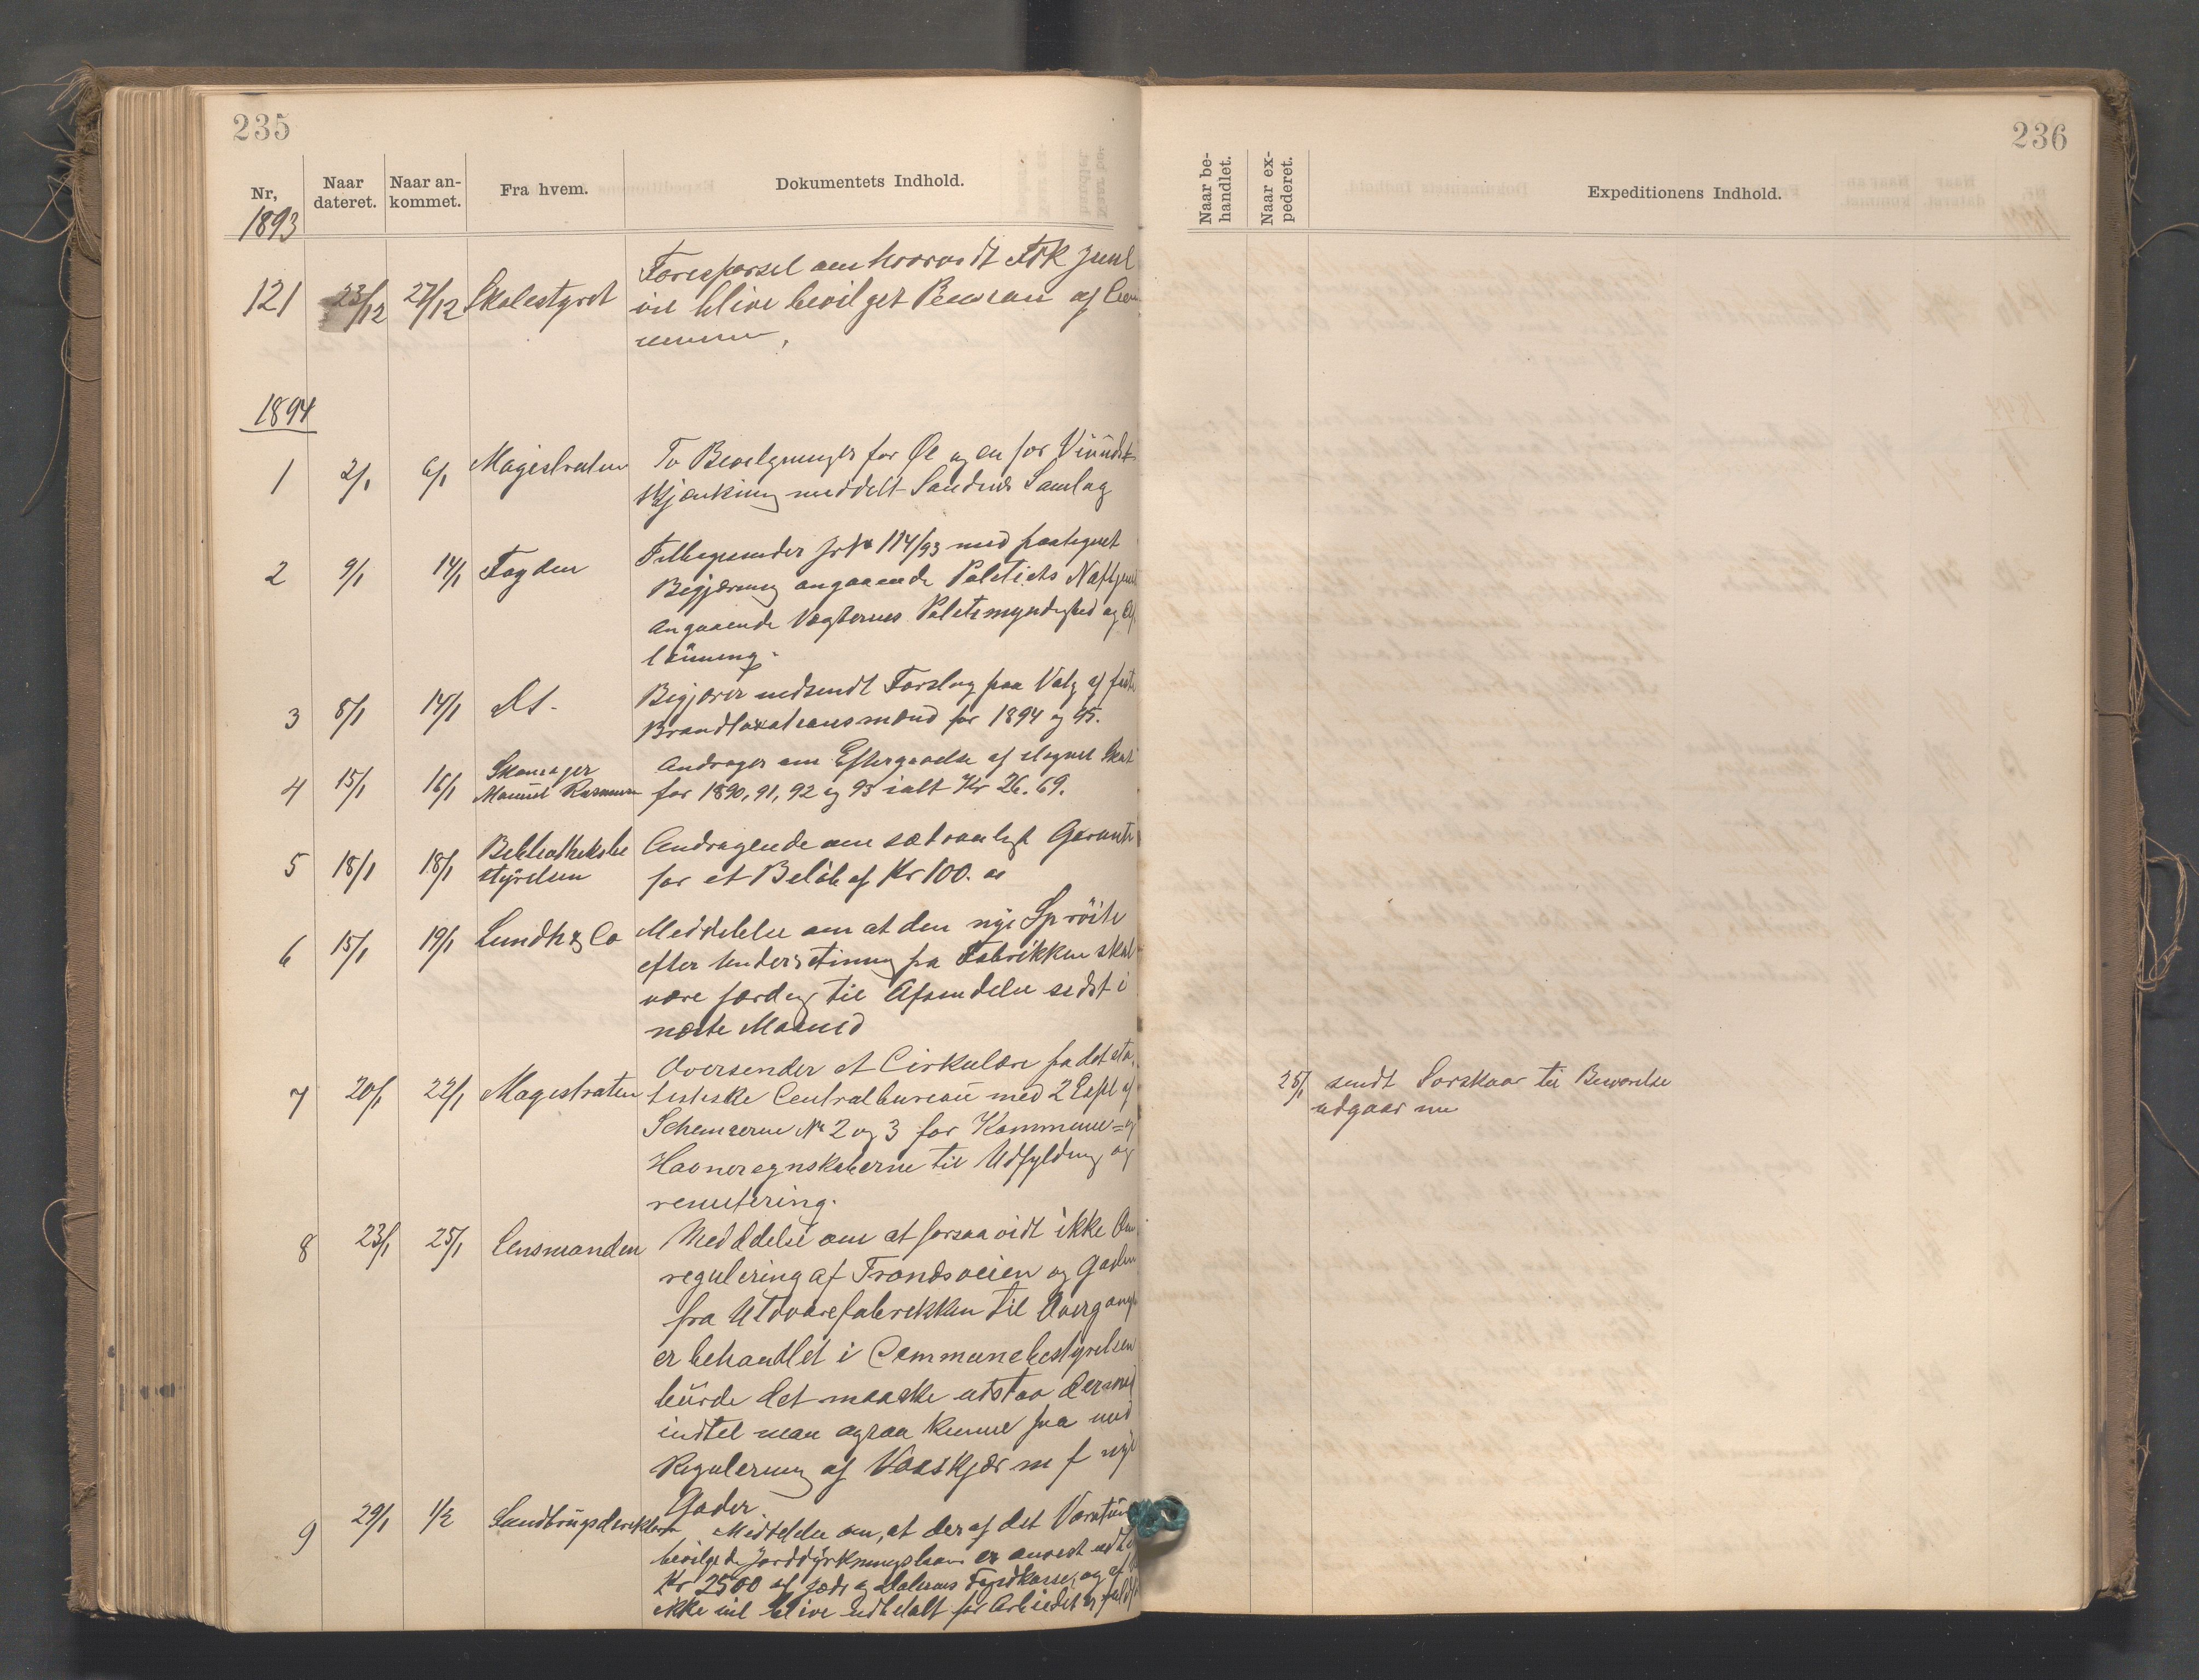 235
Nr, Naar dateret. Naar ankommet. Fra hvem. Dokumentets Indhold.
1893
121 23/12 27/12 Skolestyret Forespørsel om hvorvidt Frk Juul
vil blive bevilget Pension af Com
munen,
1894
1 2/1 6/1 Magistraten To Bevilgninger for Øl og en for Viinudsk
skjænkning meddelt Sandnes Samlag
2 9/1 14/1 Fogden Tilbagesender Jr № 114/93 med paategnet
Begjæring angaaende Politiets
angaaende Vægternes Politimyndighed og Af
lønning.
3 8/1 14/1 Dt. Begjærer indsendt Forslag paa Valg af faste
Brandtaxationsmænd for 1894 og 95.
4 15/1 16/1 Skomager Andrager om Eftergivelse af ilignet Skat
Rasmussen for 1890, 91, 92 og 93 ialt Kr 26.69.
5 18/1 18/1 Bibliotheksbe Andragende om sædvanligt Garanti
styrelsen for et Beløb af Kr 100.
6 15/1 19/1 Lundh & Co Meddelelse om at den nye Sprøite
efter Underretning fra Fabrikken skal
være færdig til Afsendelse sidst i
næste Maaned
7 20/1 22/1 Magistraten Oversender et Cirkulære fra det sta
tistiske Centralbureau med 2 Expl af
Schemaerne № 2 og 3 for Kommune= og
Havneregnskaberne til Udfyldning og
remitering.
8 23/1 25/1 Lensmanden Meddelelse om at forsaavidt ikke Om
regulering af Trondsveien og Gaden
fra Uldvarefabrikken til Overgang
er behandlet i Communebestyrelsen
burde det maaske udstaa dermed
indtil man ogsaa kunne faa med
Regulering af Vaaskjær m f nye
Gader
9 29/1 1/2 Landbrugsdirektøren Meddelelse om, at der af det
bevilgede Jorddyrkningslaan er anvist udb
Kr 2500 af Jæder og Dalernes Fogdkasse, og at
ikke vil blive udbetalt før Arbeidet er fuldf
236
Naar behandlet. Naar expederet. Expeditionens Indhold.
25/1 sendt Sorskaar til Besvarelse
udgaar nu